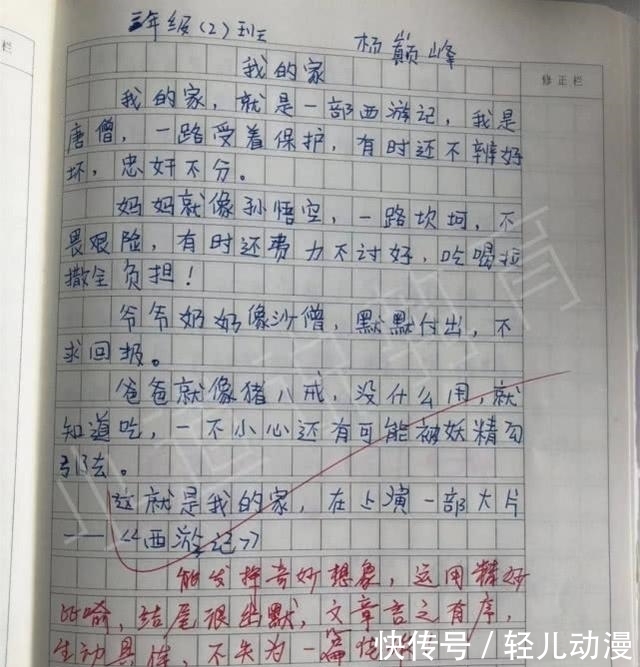 三年级(2)班 杨巅峰
修正栏
我的家
我的家，就是一部西游记，我是
唐僧，一路受着保护，有时还不辨好
坏，忠奸不分。
妈妈就像孙悟空，一路坎坷，不
畏艰险，有时还费力不讨好，吃喝拉
撒全负担！
爷爷奶奶像沙僧，默默付出，不
求回报。
爸爸就像猪八戒，没什么用，就
知道吃，一不小心还有可能被妖精勾
引去。
这就是我的家，在上演一部大片
——《西游记》
能发挥奇妙想象，运用精好
比喻，结尾很幽默，文章言之有序，
生动具体，不失为一篇
快传号／轻儿动漫